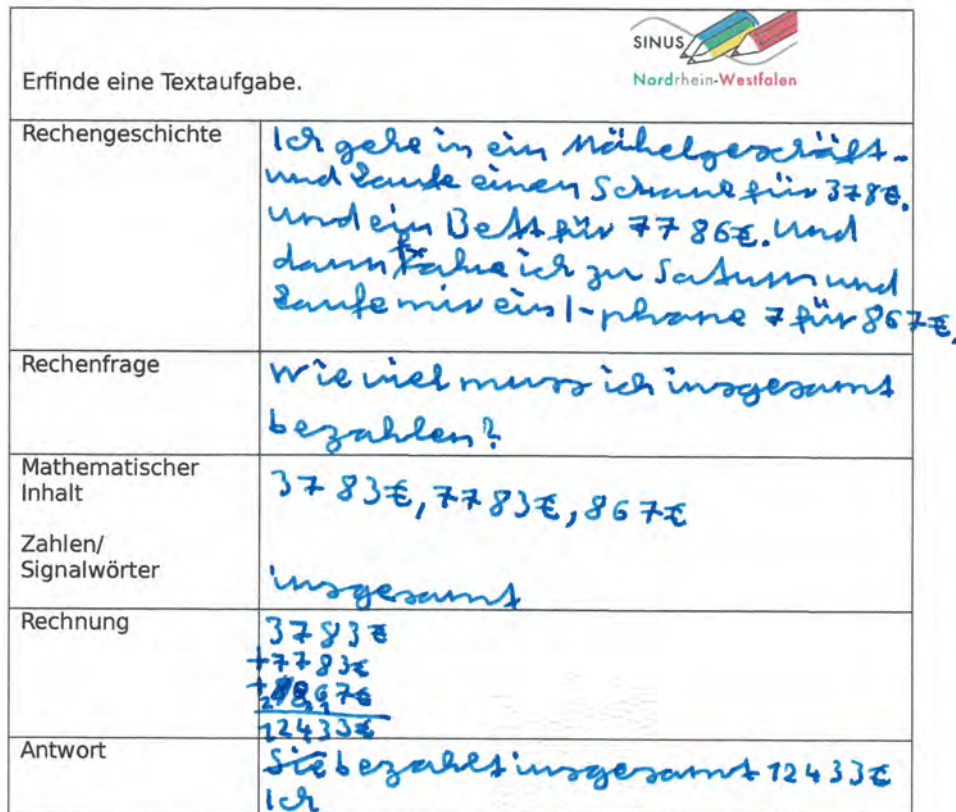 SINUS
Nordrhein-Westfalen
Erfinde eine Textaufgabe.
Rechengeschichte
Ich gehe in ein Möbelgeschäft
und kaufe einen Schrank für 378€.
und ein Bett für 7786€. Und
dann fahre ich zu Saturn und
kaufe mir ein I-phone 7 für 867€.
Rechenfrage
Wie viel muss ich insgesamt
bezahlen?
Mathematischer
Inhalt
3783€, 7783€, 867€
Zahlen/
Signalwörter
insgesamt
Rechnung
3783€
+7783€
+ 867€
12433€
Antwort
Sie bezahlt insgesamt 12433€
Ich